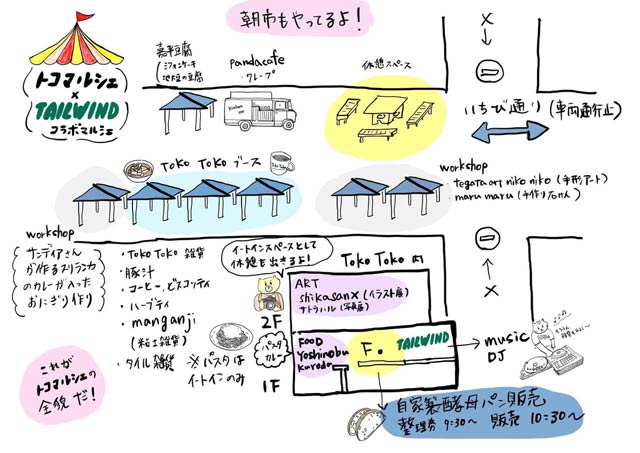 朝市もやってるよ！
トコマルシェ
×
TAILWIND
コラボマルシェ
嘉平豆腐
シフォンケーキ
地大豆の豆腐
pandacafe
・クレープ
休憩スペース
×
いちび通り(車両通行止)
TOKO TOKO ブース
workshop
tegata art niko niko (手形アート)
maru maru (手作り石けん)
workshop
サンディアさん
が作るスリランカ
のカレーが入った
おにぎり作り
・TOKO TOKO 雑貨
・豚汁
・コーヒー、ビスコッティ
・ハーブティ
・manganji
(粘土雑貨)
・タイル雑貨
※パスタは
イートインのみ
イートインスペースとして
休憩も出きるよ！
TOKO TOKO 内
2F
ART
shikasanx (イラスト展)
サトウハル (写真展)
パスタ
カレー
1F
FOOD
Yoshinobu
kuroda
F.
TAILWIND
music
DJ
×
これが
トコマルシェの
全貌だ！
自家製酵母パン販売
整理券 9:30〜 販売 10:30〜